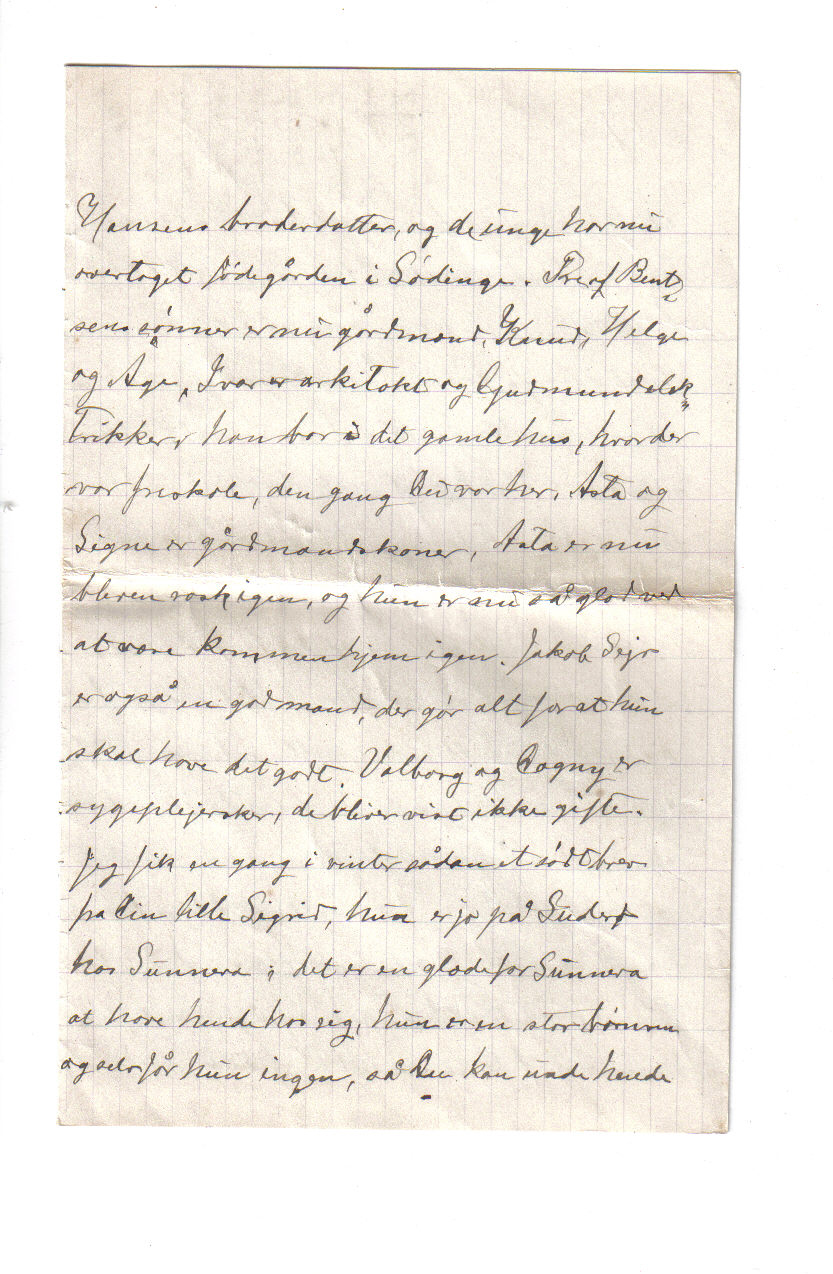 Hansens broderdatter, og de unge har nu
overtaget fødegården i Sødinge. Tre af Bent-
sens sønner er nu gårdmænd, Knud, Helge
og Åge, Ivar er arkitekt og Gudmund elek-
triker, han bor i det gamle hus, hvor der
var friskole, den gang Du var her, Asta og
Signe er gårdmandskoner, Asta er nu
bleven rask igen, og hun er nu så glad ved
at være kommen hjem igen. Jakob Sejr
er også en god mand, der gør alt for at hun
skal have det godt. Valborg og Dagny er
sygeplejersker, de bliver vist ikke gifte.
Jeg fik en gang i vinter sådan et sødt brev
fra Din lille Sigrid, hun er jo på
hos Sunnera; det er en glæde for Sunnera
at have hende hos sig, hun er en stor børneven
og selv får hun ingen, så Du kan unde hende